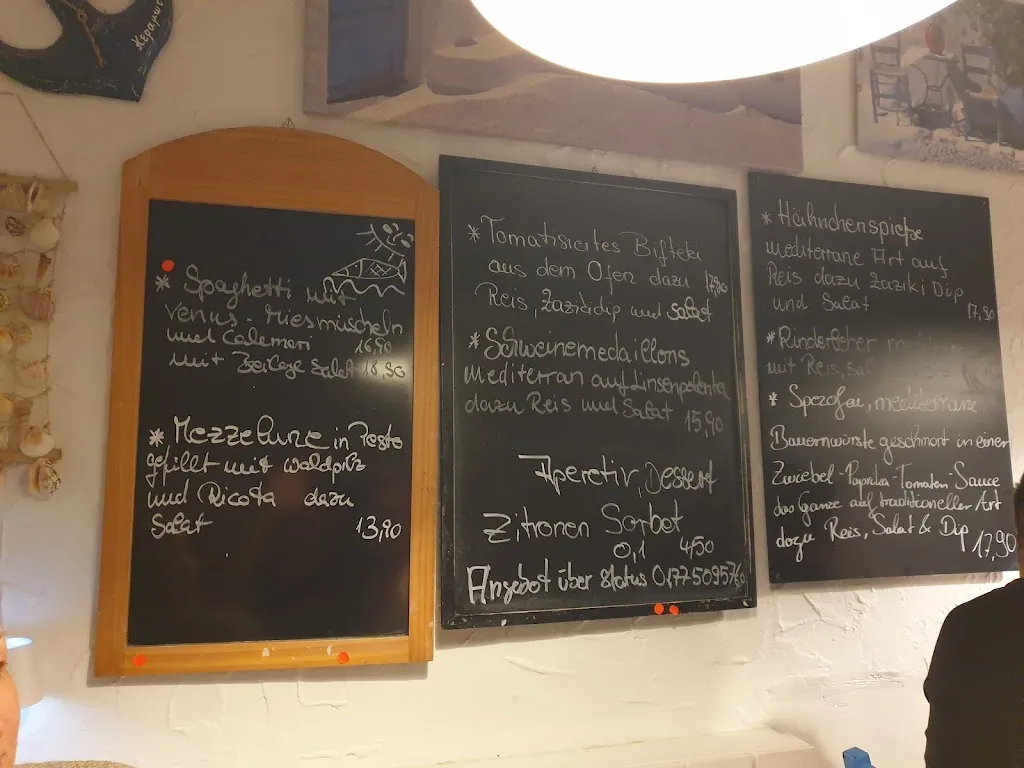 Κεραμωτ
* Spaghetti mit
Venus- Miesmuscheln
und Calameri 16,90
mit Beilage Salat 18,90
* Mezzelune in Pesto
gefüllt mit Waldpilz
und Ricota dazu
Salat 13,90
* Tomatisiertes Bifteki
aus dem Ofen dazu 17,90
Reis, Zazikidip und Salat
* Schweinemedaillons
mediterran auf Linsenpolenta
dazu Reis und Salat 15,90
Aperetiv, Dessert
Zitronen Sorbet
0,1 4,50
Angebot über Status
* Hähnchenspieße
mediterrane Art auf
Reis dazu Zaziki Dip
und Salat 17,90
mit Reis,
* Spezofai, mediterrane
Bauernwürste geschmort in einer
Zwiebel-Paprika-Tomaten-Sauce
das Ganze auf traditioneller Art
dazu Reis, Salat & Dip 17,90